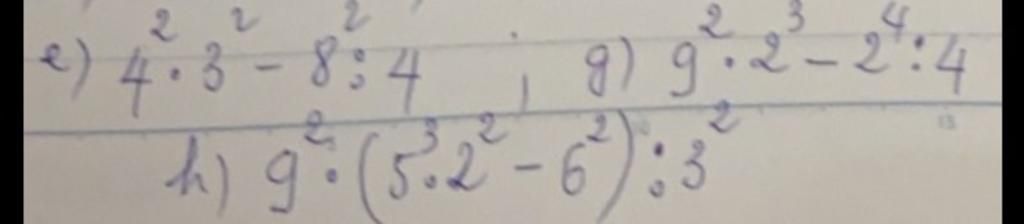 e) 4² · 3² - 8² : 4 , g) 9² · 2³ - 2⁴ : 4
h) 9² · (5³ · 2² - 6²) : 3²